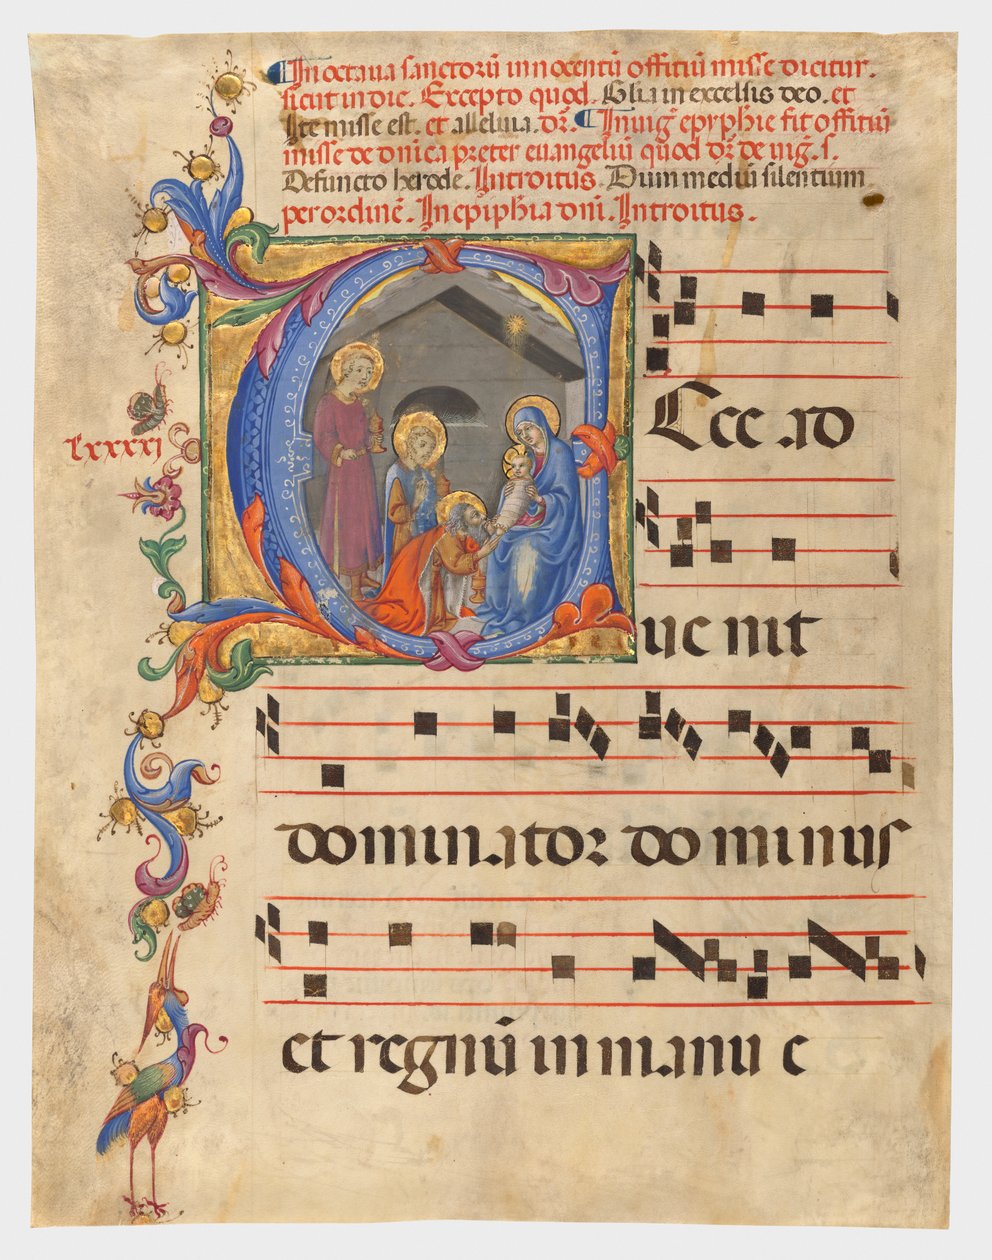 In octaua sanctorū innocentū offitiū misse dicitur.
sicut in die. Excepto quod. Glia in excelsis deo. et
Ite misse est. et alleluia. dr̄. In uiḡ epyphie fit offitiū
misse de dnīca preter euangeliū quod dr̄ de uig̃. s.
Defuncto herode. Introitus. Dum mediū silentium
per ordinē. In epiphia dnī. Introitus.
lxxxxi
Ecce ad
ue nit
dominator do minus
et regnū in manu e